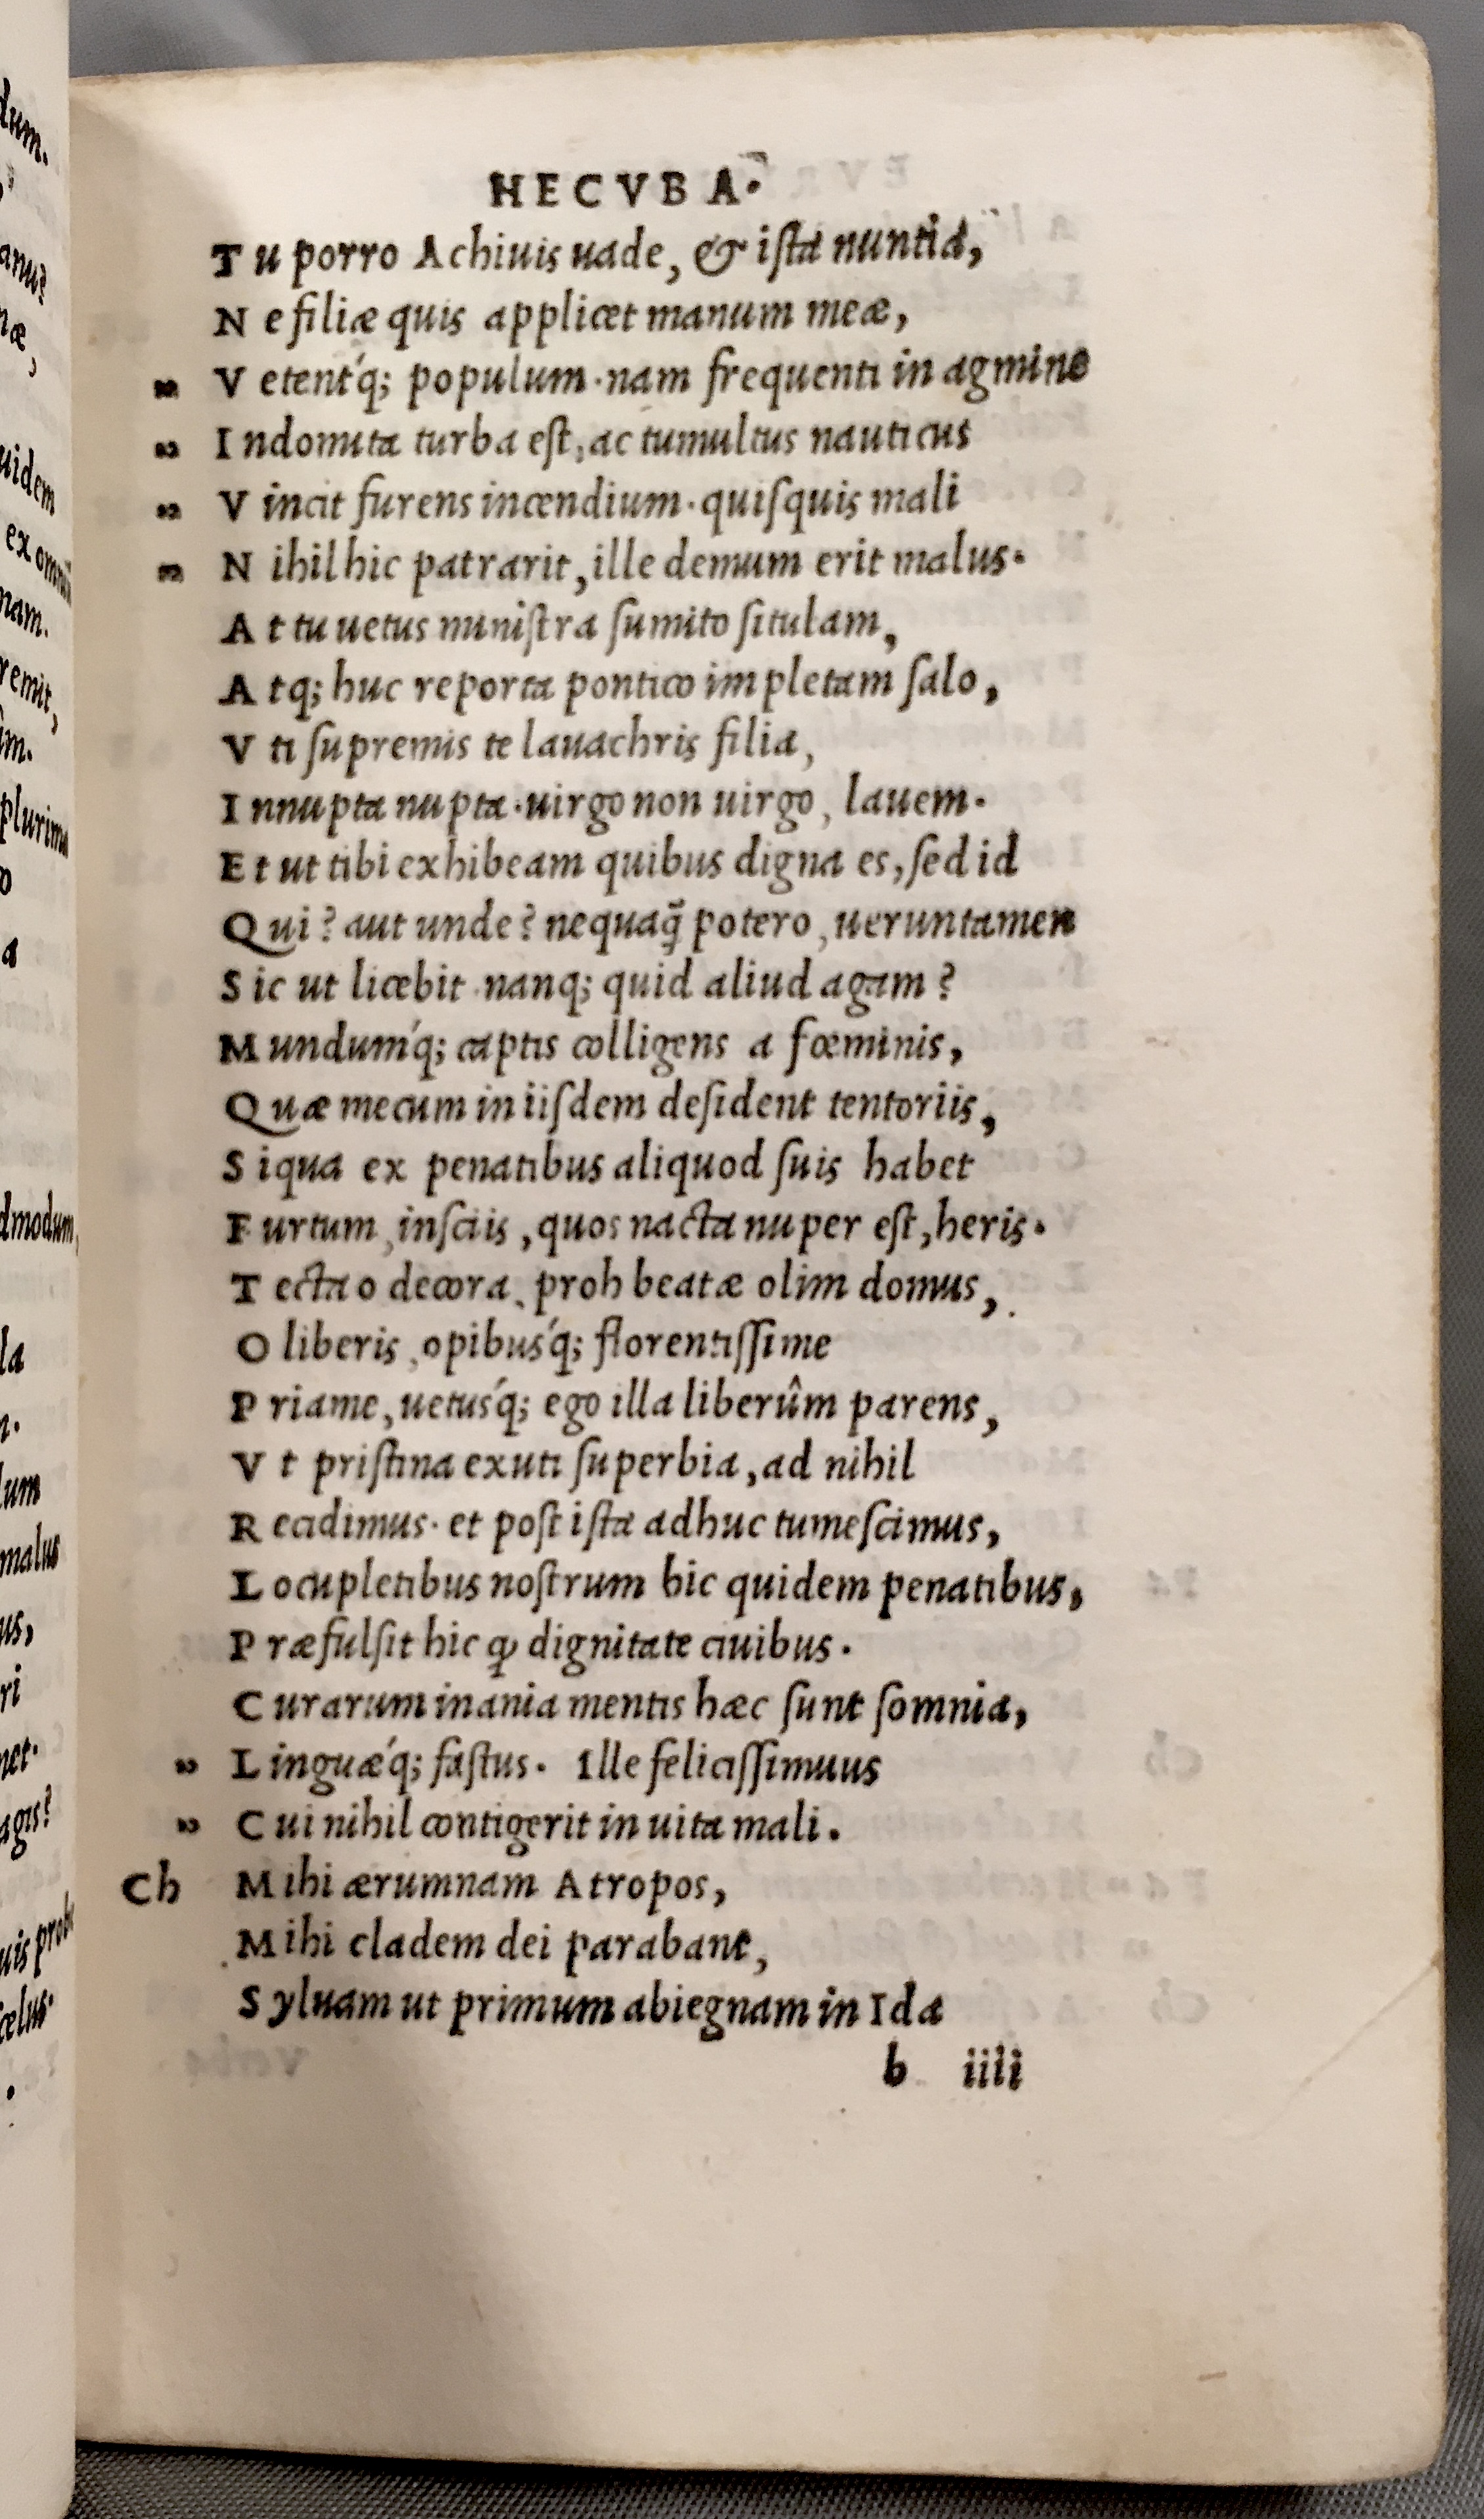 HECVBA.
Tu porro Achiuis uade, & ista nuntia,
Ne filiæ quis applicet manum meæ,
" Vetent'q; populum. nam frequenti in agmine
" Indomita turba est, ac tumultus nauticus
" Vincit furens incendium. quisquis mali
" Nihil hic patrarit, ille demum erit malus.
At tu uetus ministra sumito situlam,
Atq; huc reporta pontico impletam salo,
Vti supremis te lauachris filia,
Innupta nupta. uirgo non uirgo, lauem.
Et ut tibi exhibeam quibus digna es, sed id
Qui? aut unde? nequaq̃ potero, ueruntamen
Sic ut licebit. nanq; quid aliud agam?
Mundum'q; captis colligens a fœminis,
Quæ mecum in iisdem desident tentoriis,
Siqua ex penatibus aliquod suis habet
Furtum, insciis, quos nacta nuper est, heris.
Tecta o decora, proh beatæ olim domus,
O liberis, opibus'q; florentissime
Priame, uetus'q; ego illa liberûm parens,
Vt pristina exuti superbia, ad nihil
Recidimus. et post ista adhuc tumescimus,
Locupletibus nostrum hic quidem penatibus,
Præfulsit hic ꝙ dignitate ciuibus.
Curarum inania mentis hæc sunt somnia,
" Linguæ'q; fastus. Ille felicissimuus
" Cui nihil contigerit in uita mali.
Ch Mihi ærumnam Atropos,
Mihi cladem dei parabant,
Syluam ut primum abiegnam in Ida
b iiii
dum.
anus?
næ,
uidem
ex omniũ
nam.
remit,
plurima
a
dmodum,
la
lum
malus
us,
ri
net.
agis?
uis probe